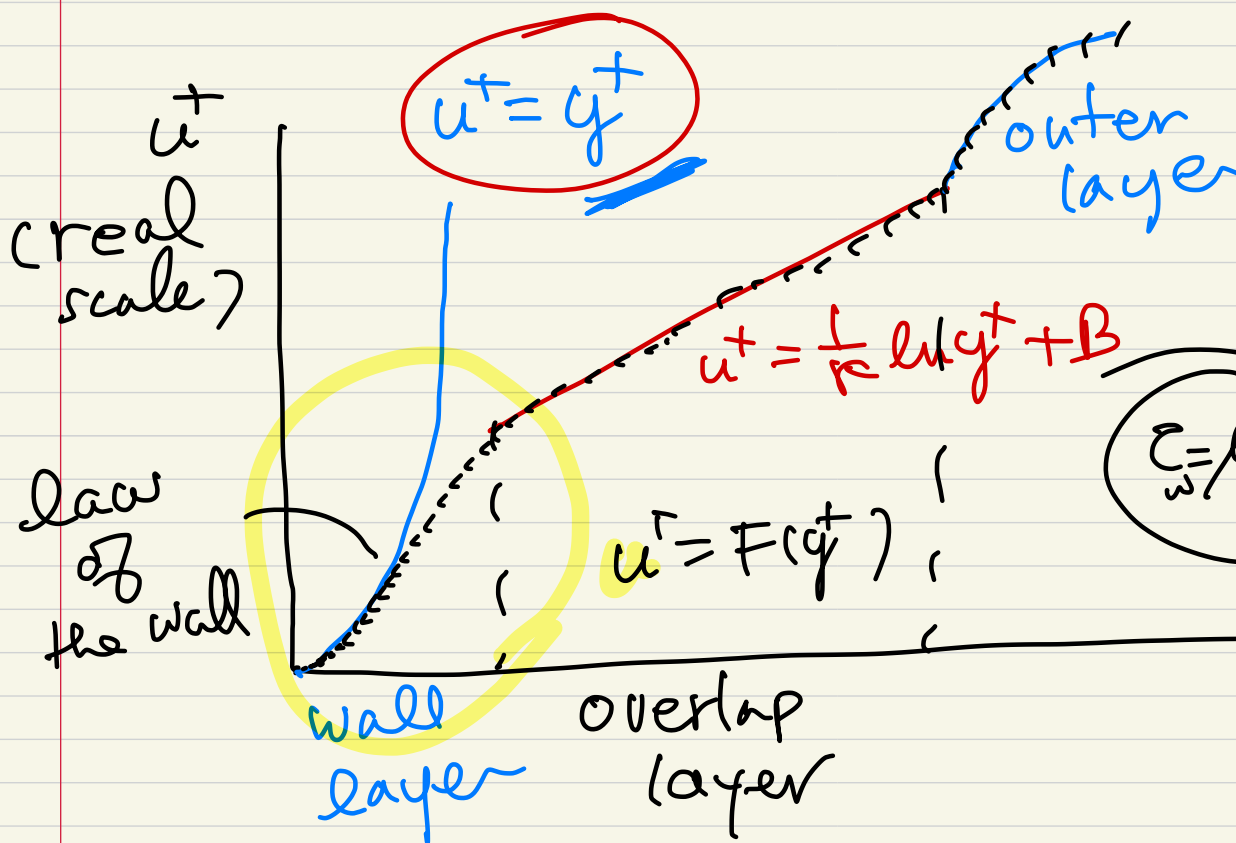 u⁺ = y⁺
u⁺
(real
scale)
outer
layer
u⁺ = 1/κ ln y⁺ + B
law
of
the wall
u⁺ = F(y⁺)
wall
layer
overlap
layer